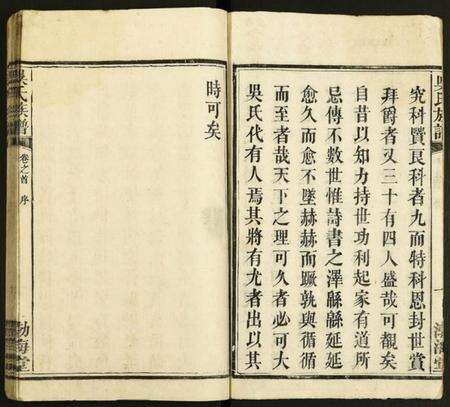 吳氏族譜
渤海堂
究科賢良科者九而特科恩封世賞
拜爵者又三十有四人盛哉可觀矣
自昔以知力持世功利起家有道所
忌傳不數世惟詩書之澤緜緜延延
愈久而愈不墜赫赫而蹶孰與循循
而至者哉天下之理可久者必可大
吳氏代有人焉其將有尤者出以其
時可矣
吳氏族譜
卷之首
序
渤海堂